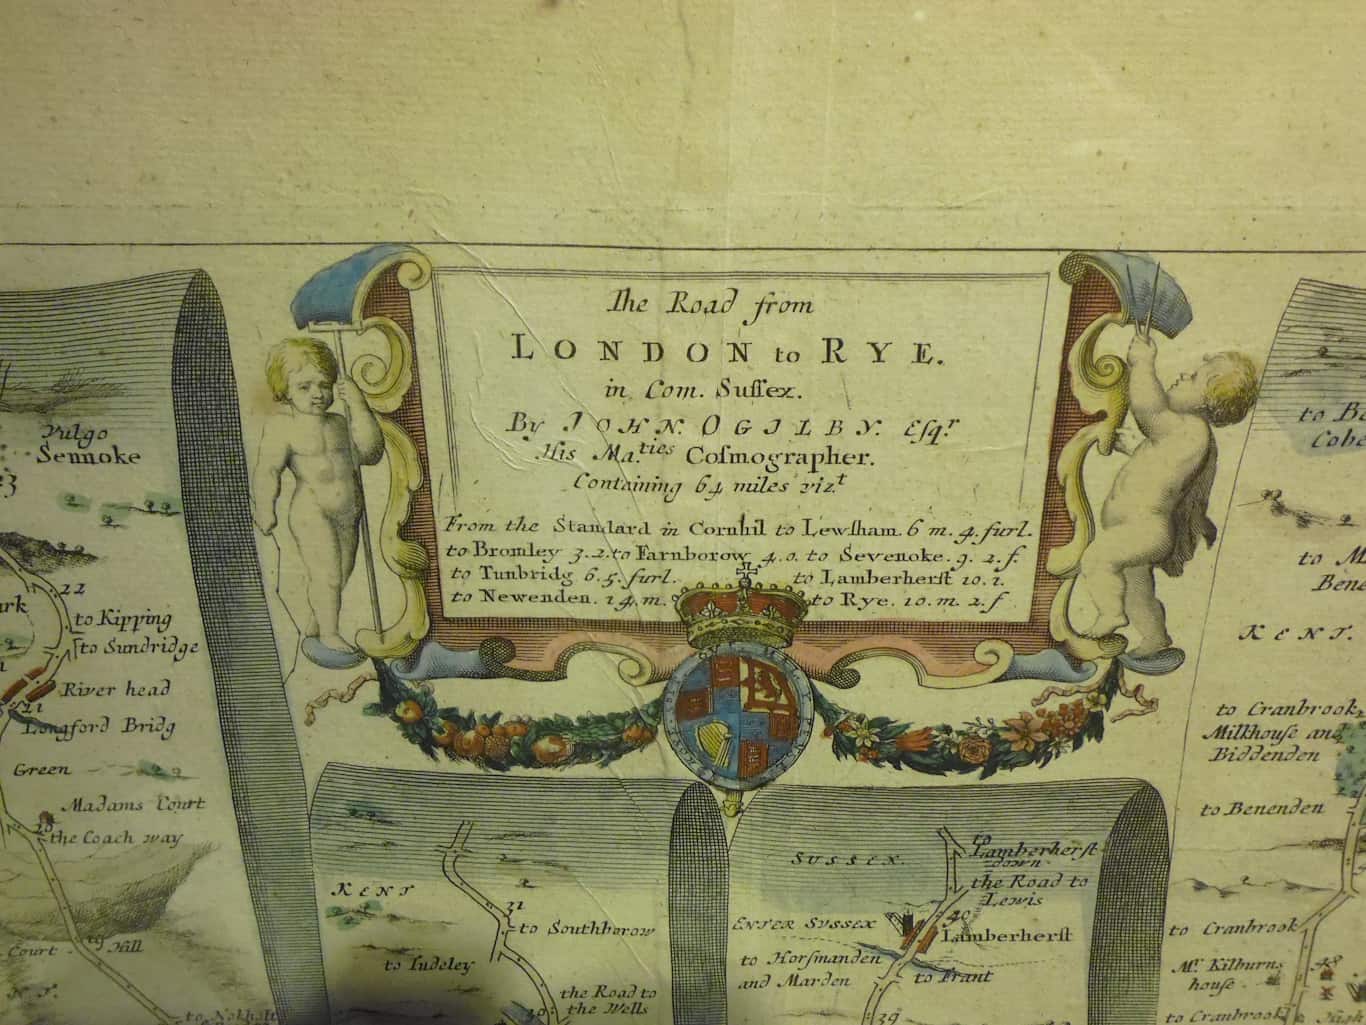 The Road from
LONDON to RYE.
in Com. Suſſex.
By JOHN. OGILBY. Eſqr
His Ma.ties Coſmographer.
Containing 64 miles vizt
From the Standard in Cornhil to Lewſham. 6 m. 4. furl.
to Bromley 3.2. to Farnborow 4.0. to Sevenoke. 9. 2. f.
to Tunbridg 6.5. furl. to Lamberherſt 10.1.
to Newenden. 14. m. to Rye. 10. m. 2. f
Vulgo
Sennoke
23
22
to Kipping
to Sundridge
River head
21
Longford Bridg
Green
Madams Court
20
the Coach way
Court
19
Hill
KENT
31
to Southborow
to Tudeley
the Road to
the Wells
30
SUSSEX.
to
Lamberherſt
down
the Road to
Lewis
ENTER SUSSEX
40
Lamberherſt
to Horſmanden
and Marden
to Frant
39
to
KENT.
to Cranbrook,
Milkhouſe and
Biddenden
to Benenden
to Cranbrook
Mr. Kilburns
houſe.
48
to Cranbrook
High